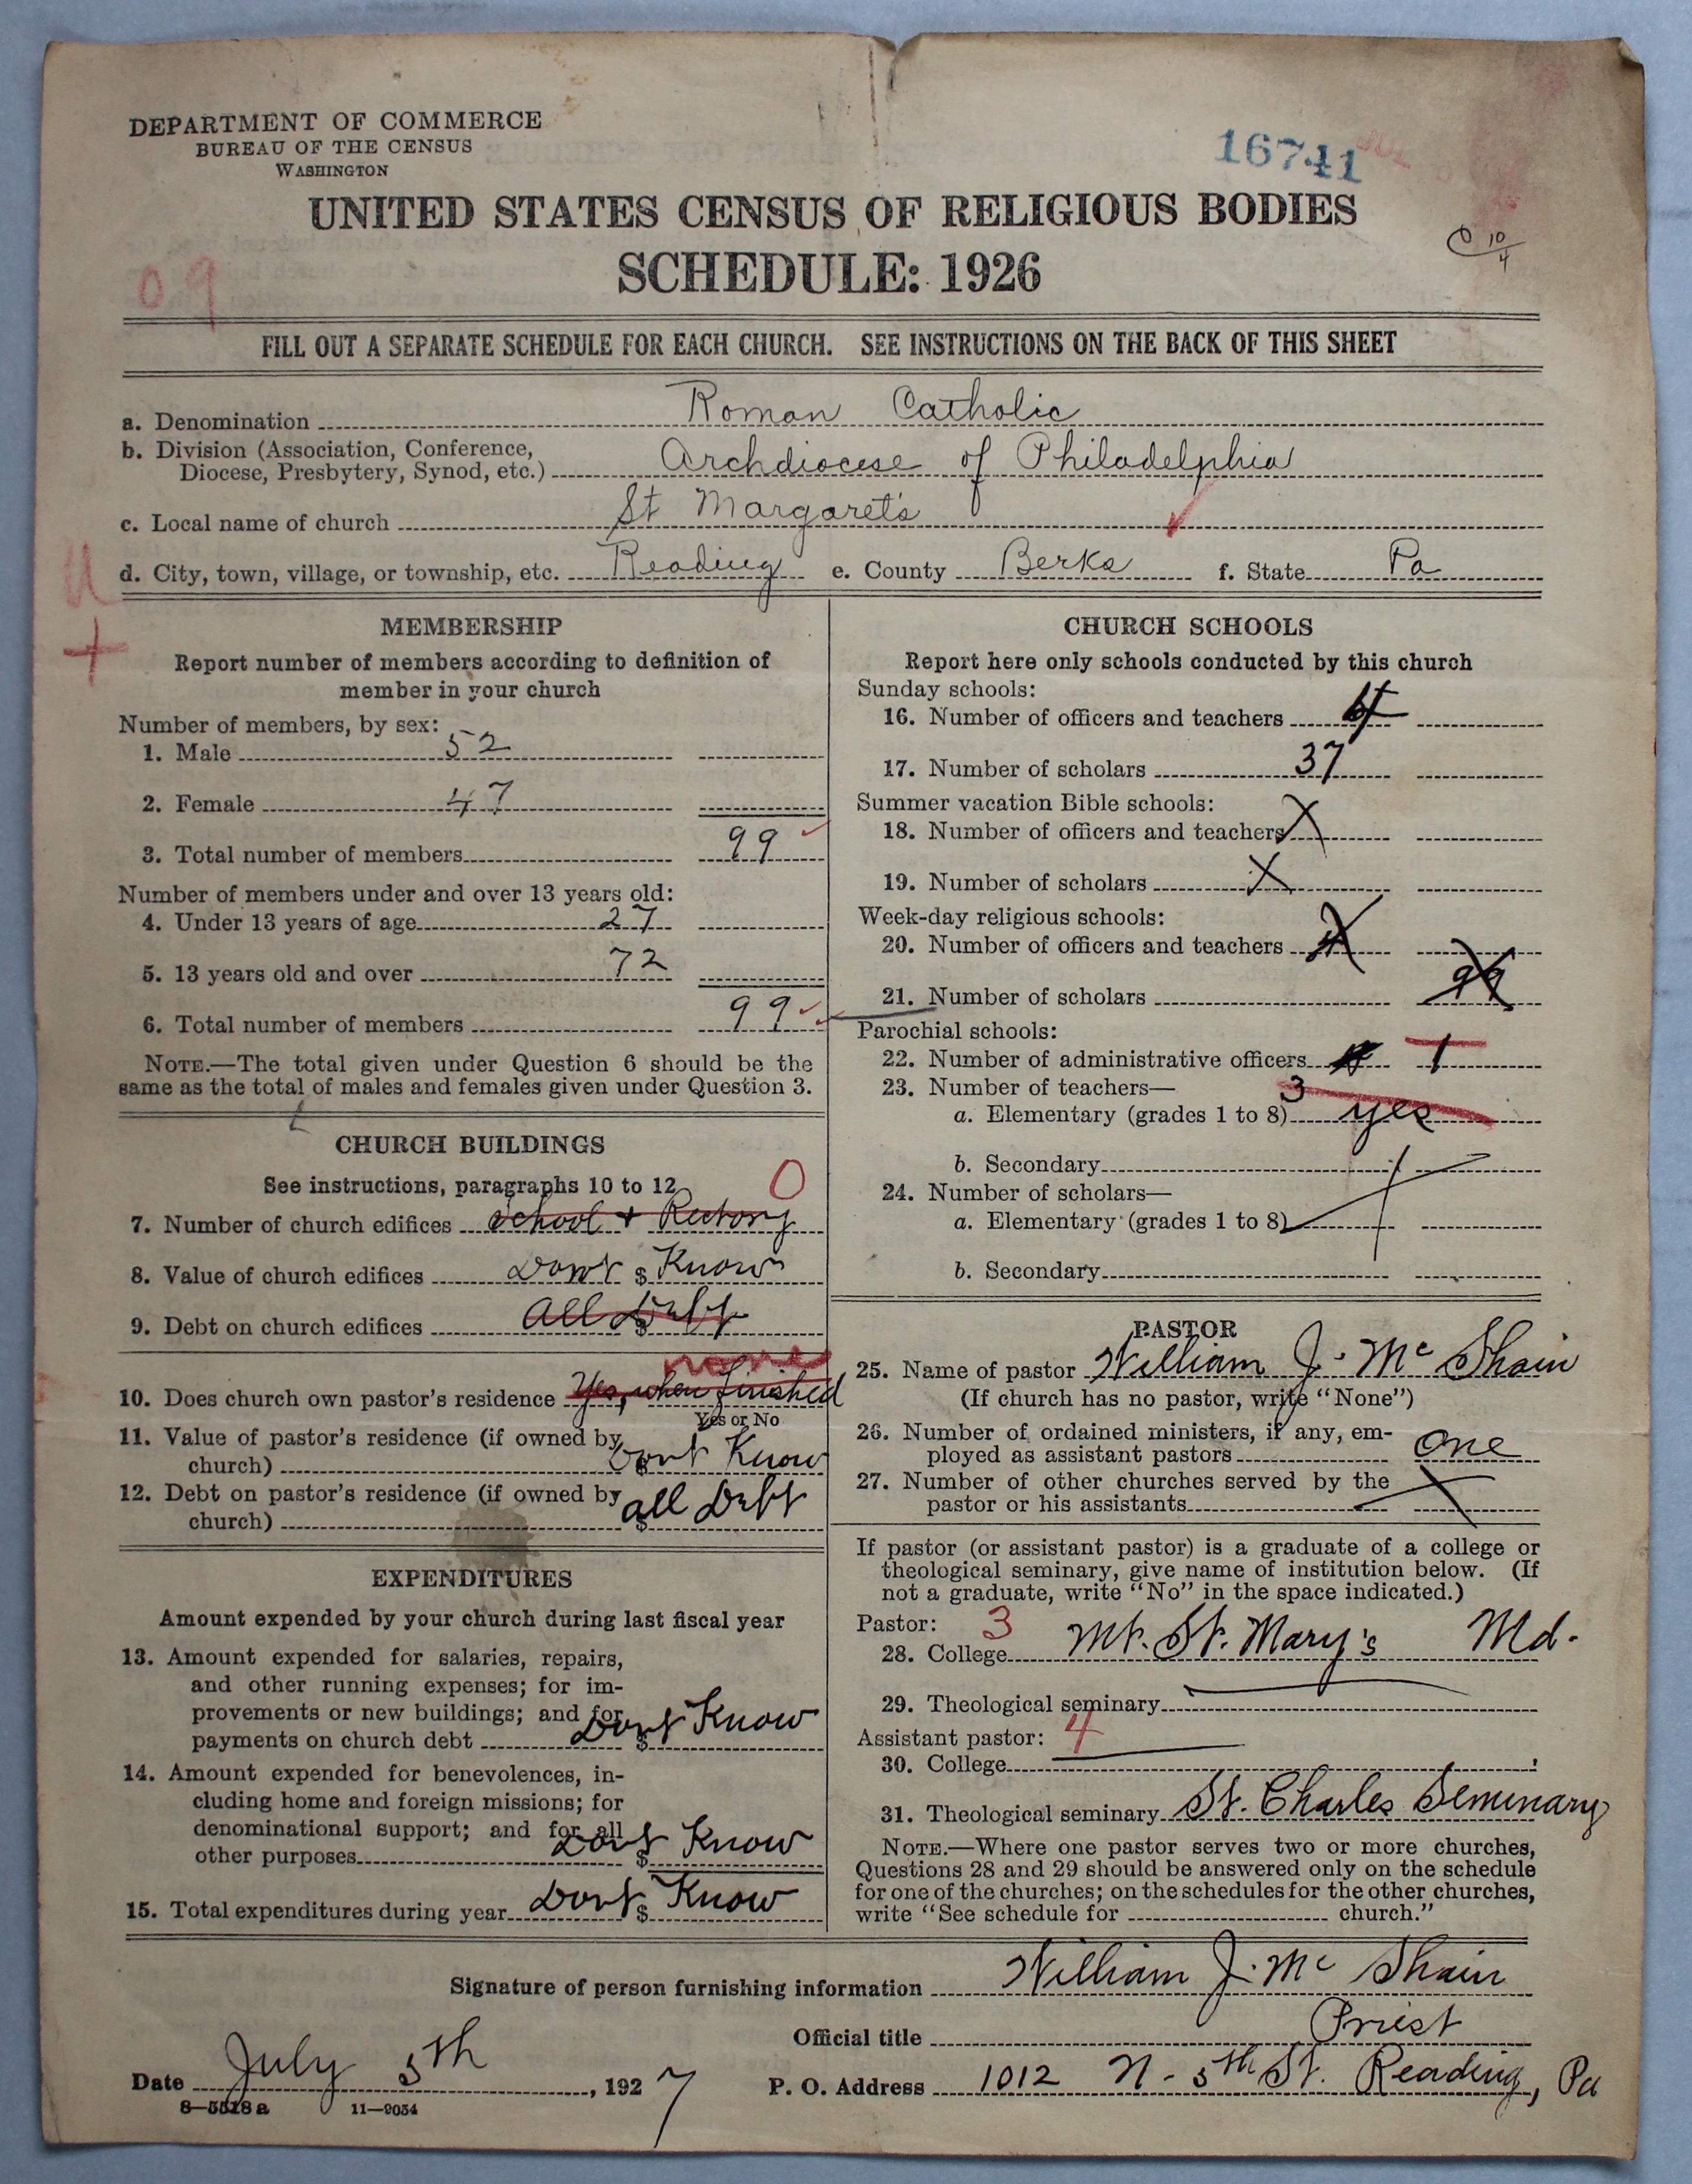 DEPARTMENT OF COMMERCE
BUREAU OF THE CENSUS
WASHINGTON
16741
UNITED STATES CENSUS OF RELIGIOUS BODIES
SCHEDULE: 1926
C 10/4
09
FILL OUT A SEPARATE SCHEDULE FOR EACH CHURCH. SEE INSTRUCTIONS ON THE BACK OF THIS SHEET
a. Denomination Roman Catholic
b. Division (Association, Conference,
Diocese, Presbytery, Synod, etc.) Archdiocese of Philadelphia
c. Local name of church St Margaret's
d. City, town, village, or township, etc. Reading e. County Berks f. State Pa
MEMBERSHIP
Report number of members according to definition of
member in your church
Number of members, by sex:
1. Male 52
2. Female 47
3. Total number of members 99
Number of members under and over 13 years old:
4. Under 13 years of age 27
5. 13 years old and over 72
6. Total number of members 99
NOTE.—The total given under Question 6 should be the
same as the total of males and females given under Question 3.
CHURCH BUILDINGS
See instructions, paragraphs 10 to 12
0
7. Number of church edifices School + Rectory
8. Value of church edifices Dont $ Know
9. Debt on church edifices All Debt $
none
10. Does church own pastor's residence Yes, when finished
Yes or No
11. Value of pastor's residence (if owned by
church) Dont $ Know
12. Debt on pastor's residence (if owned by
church) $ all Debt
EXPENDITURES
Amount expended by your church during last fiscal year
13. Amount expended for salaries, repairs,
and other running expenses; for im-
provements or new buildings; and for
payments on church debt Dont $ Know
14. Amount expended for benevolences, in-
cluding home and foreign missions; for
denominational support; and for all
other purposes Dont $ Know
15. Total expenditures during year Dont $ Know
CHURCH SCHOOLS
Report here only schools conducted by this church
Sunday schools:
16. Number of officers and teachers
17. Number of scholars 37
Summer vacation Bible schools:
18. Number of officers and teachers X
19. Number of scholars X
Week-day religious schools:
20. Number of officers and teachers
21. Number of scholars 99
Parochial schools:
22. Number of administrative officers 1
23. Number of teachers—
a. Elementary (grades 1 to 8) 3 yes
b. Secondary
24. Number of scholars—
a. Elementary (grades 1 to 8)
b. Secondary
PASTOR
25. Name of pastor William J. Mc Shain
(If church has no pastor, write "None")
26. Number of ordained ministers, if any, em-
ployed as assistant pastors One
27. Number of other churches served by the
pastor or his assistants X
If pastor (or assistant pastor) is a graduate of a college or
theological seminary, give name of institution below. (If
not a graduate, write "No" in the space indicated.)
Pastor: 3
28. College Mt. St. Mary's Md.
29. Theological seminary
Assistant pastor: 4
30. College
31. Theological seminary St. Charles Seminary
NOTE.—Where one pastor serves two or more churches,
Questions 28 and 29 should be answered only on the schedule
for one of the churches; on the schedules for the other churches,
write "See schedule for church."
Signature of person furnishing information William J. Mc Shain
Official title Priest
Date July 5th, 1927
P. O. Address 1012 N. 5th St. Reading, Pa
8—5518a 11—9054